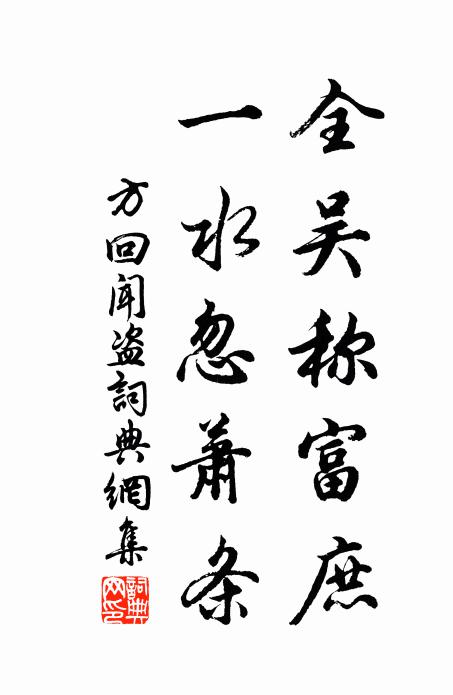 全吴称富庶
一水忽蕭条
方回闻盗詞典網集
詞典网印